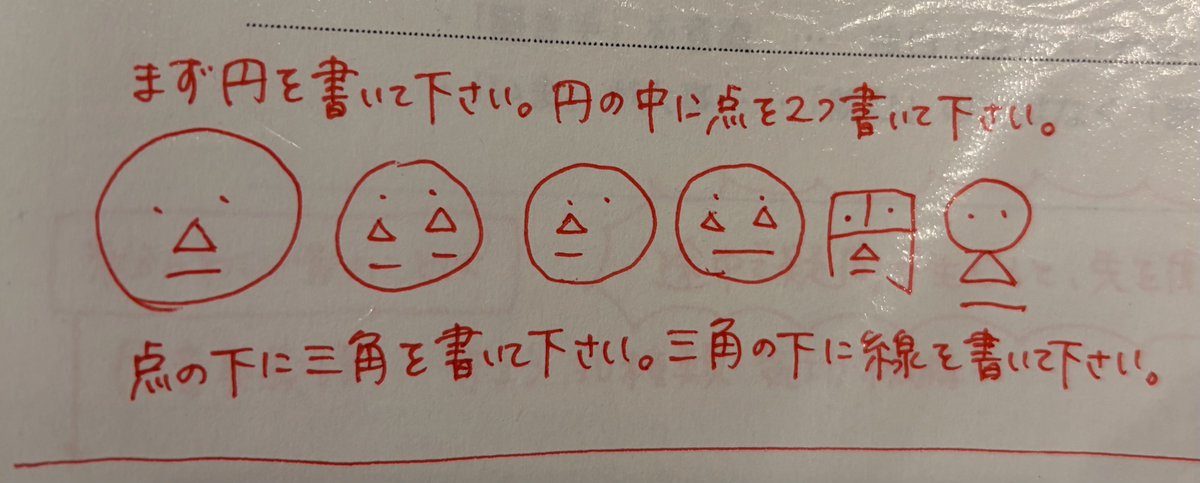 まず円を書いて下さい。円の中に点を2つ書いて下さい。
点の下に三角を書いて下さい。三角の下に線を書いて下さい。